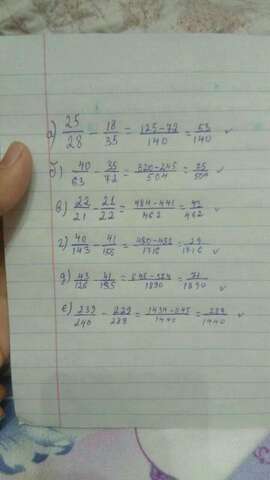 а) 25/28 - 18/35 = 125-72/140 = 53/140 ✓
б) 40/63 - 35/72 = 320-245/504 = 75/504 ✓
в) 22/21 - 21/22 = 484-441/462 = 43/462 ✓
г) 40/143 - 41/156 = 480-451/1716 = 29/1716 ✓
д) 43/126 - 41/135 = 645-574/1890 = 71/1890 ✓
е) 239/240 - 229/288 = 1434-1145/1440 = 289/1440 ✓